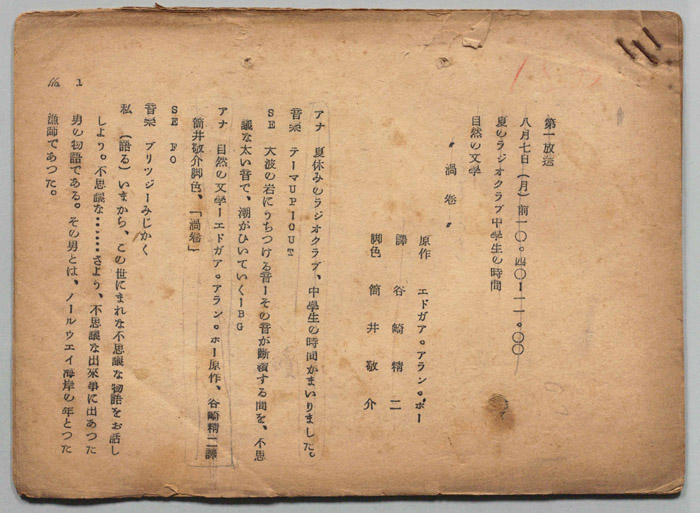 第一放送
八月七日(月)前一〇。四〇ー一一。〇〇
夏のラジオクラブ中学生の時間
自然の文学
〝渦巻〟
原作 エドガア。アラン。ポー
譯 谷崎精二
脚色 筒井敬介
アナ 夏休みのラジオクラブ、中学生の時間がまいりました。
音楽 テーマUPIOUT
SE 大波の岩にうちつける音ーその音が断續する間を、不思
議な太い音で、潮がひいていくーBG
アナ 自然の文学ーエドガア。アラン。ポー原作、谷崎精二譯
筒井敬介脚色、「渦巻」
SE FO
音楽 ブリッジーみじかく
私 (語る)いまから、この世にまれな不思議な物語をお話し
しよう。不思議な……さよう、不思議な出來事に出あつた
男の物語である。その男とは、ノールウエイ海岸の年とつた
漁師であつた。
No. 1